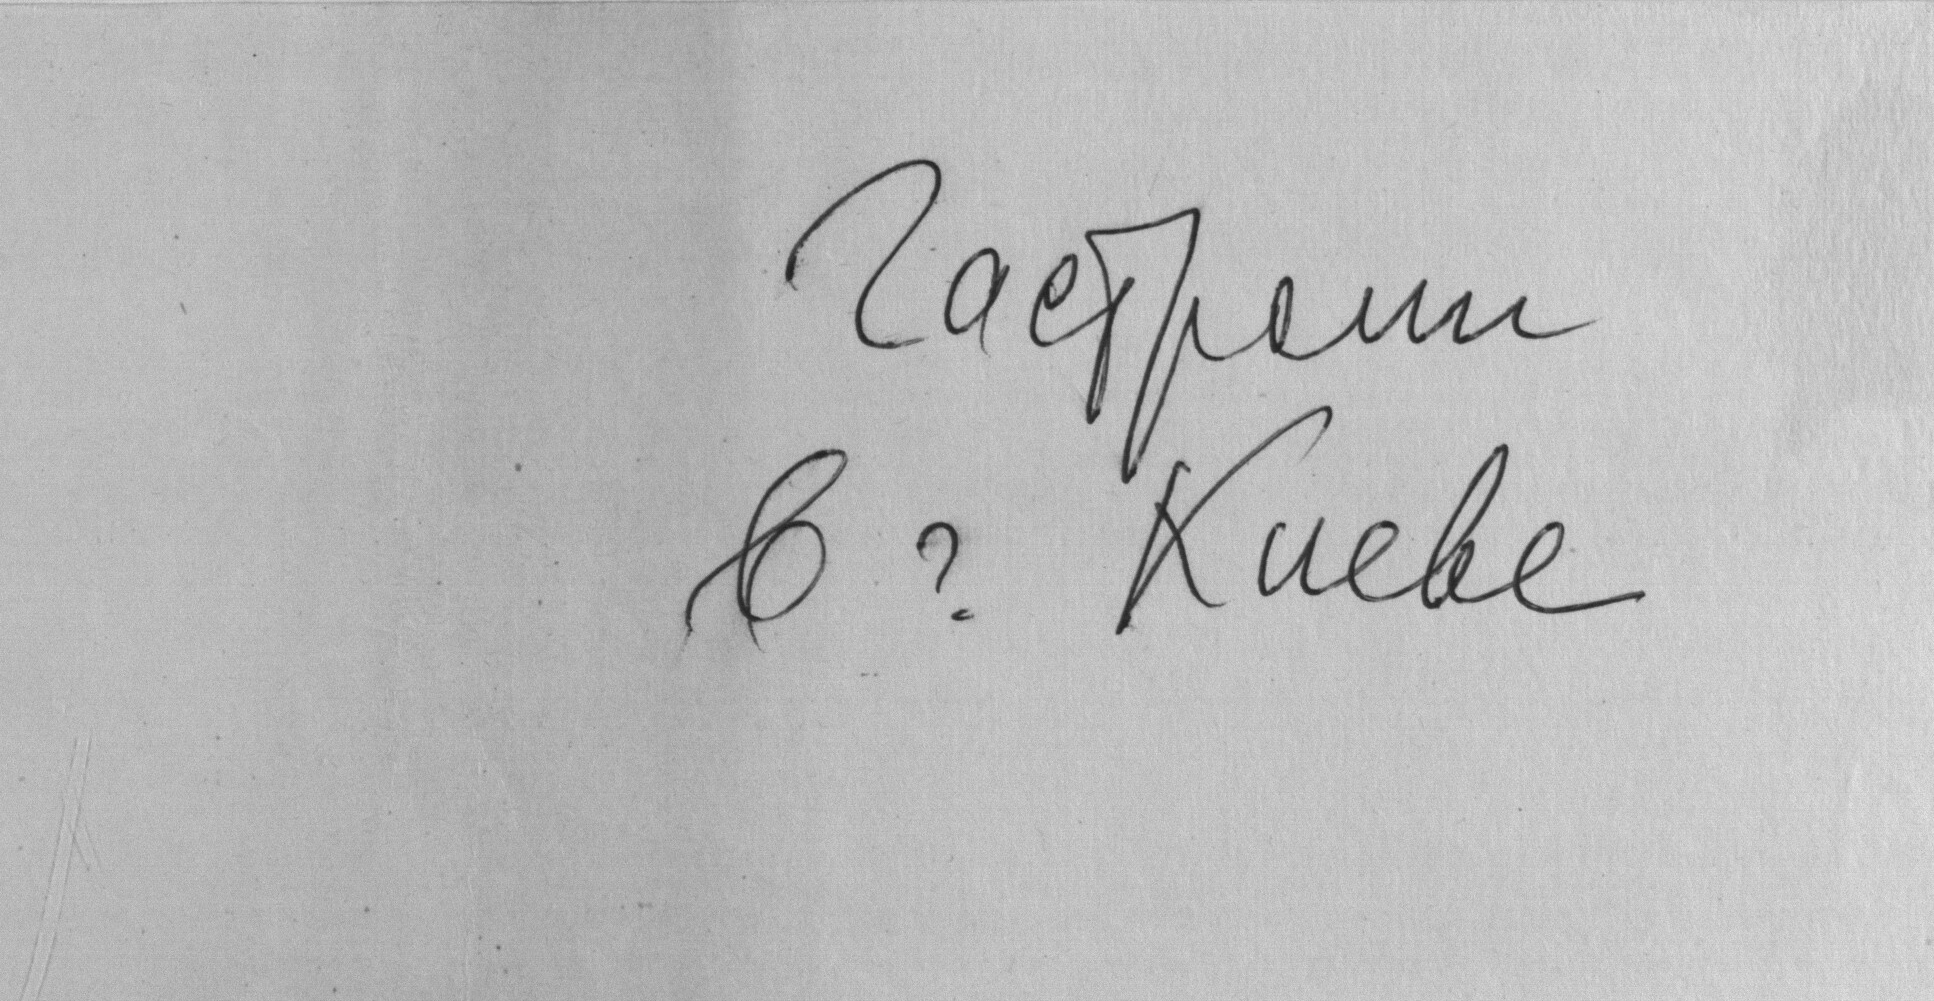 Гастроли
в г. Киеве